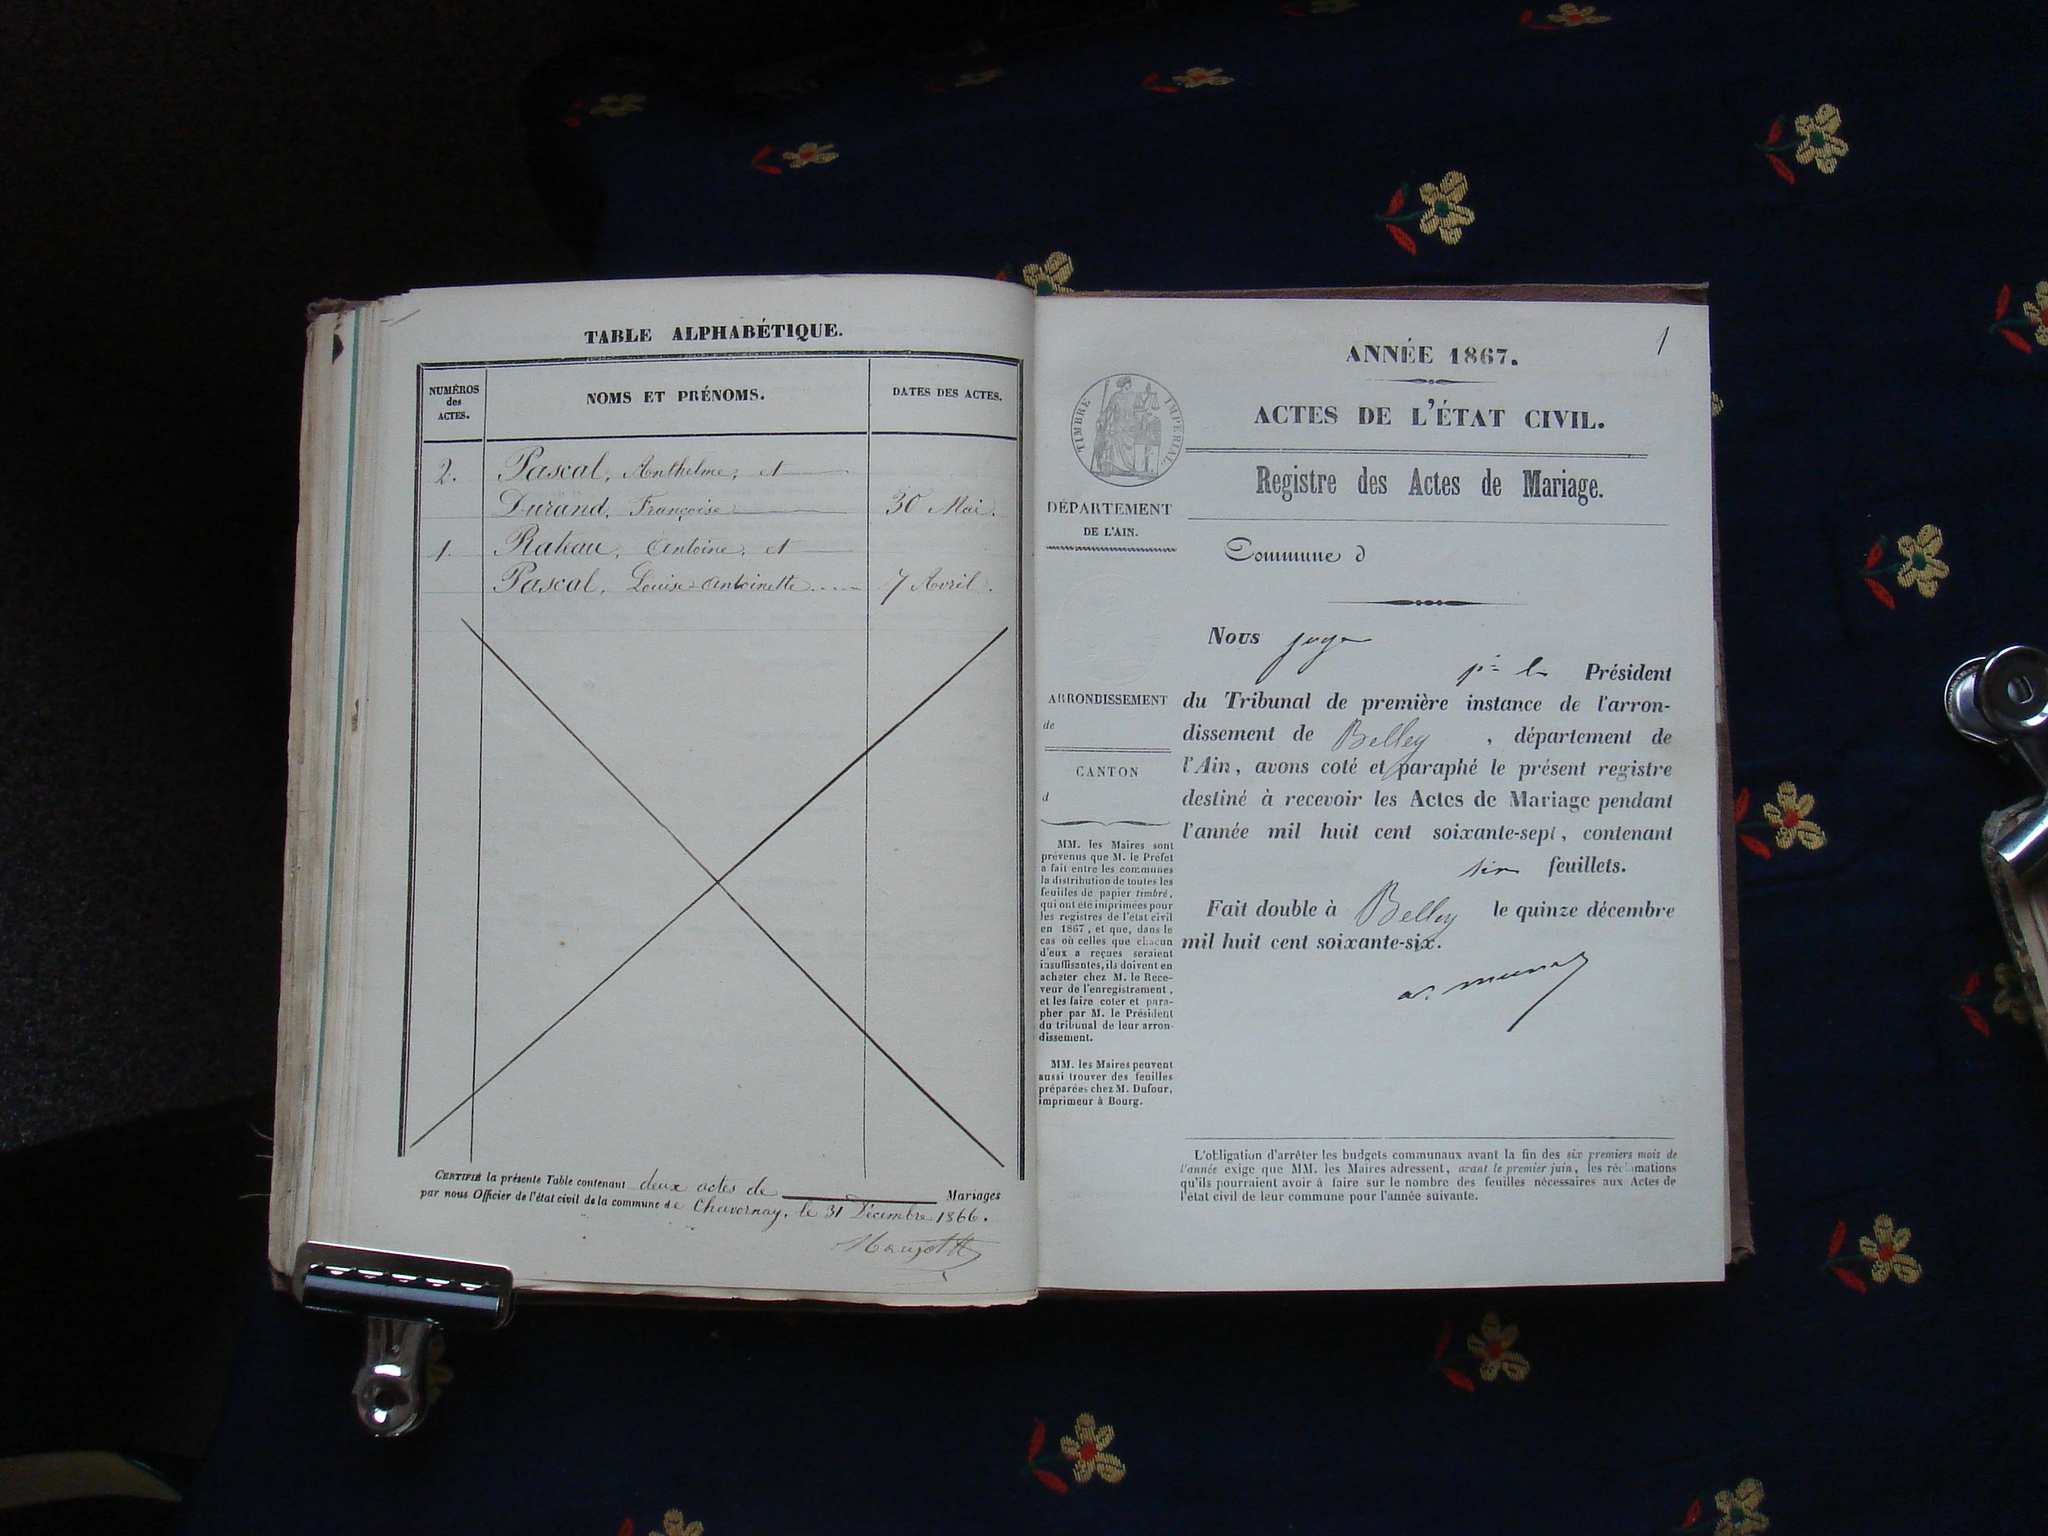 TABLE ALPHABÉTIQUE.
NUMÉROS
des
ACTES.
NOMS ET PRÉNOMS.
DATES DES ACTES.
2. Pascal, Anthelme, et
Durand, Françoise 30 Mai.
1. Rateau, Antoine, et
Pascal, Louise Antoinette 7 Avril.
CERTIFIÉ la présente Table contenant deux actes de Mariages
par nous Officier de l'état civil de la commune de Chavornay, le 31 Décembre 1866.
1
ANNÉE 1867.
ACTES DE L'ÉTAT CIVIL.
Registre des Actes de Mariage.
TIMBRE IMPÉRIAL
DÉPARTEMENT
DE L'AIN.
Commune d
Nous juge
pr le Président
du Tribunal de première instance de l'arron-
dissement de Belley, département de
l'Ain, avons coté et paraphé le présent registre
destiné à recevoir les Actes de Mariage pendant
l'année mil huit cent soixante-sept, contenant
six feuillets.
Fait double à Belley le quinze décembre
mil huit cent soixante-six.
ARRONDISSEMENT
de
CANTON
d
MM. les Maires sont
prévenus que M. le Préfet
a fait entre les communes
la distribution de toutes les
feuilles de papier timbré,
qui ont été imprimées pour
les registres de l'état civil
en 1867, et que, dans le
cas où celles que chacun
d'eux a reçues seraient
insuffisantes, ils doivent en
acheter chez M. le Rece-
veur de l'enregistrement,
et les faire coter et para-
pher par M. le Président
du tribunal de leur arron-
dissement.
MM. les Maires peuvent
aussi trouver des feuilles
préparées chez M. Dufour,
imprimeur à Bourg.
L'obligation d'arrêter les budgets communaux avant la fin des six premiers mois de
l'année exige que MM. les Maires adressent, avant le premier juin, les réclamations
qu'ils pourraient avoir à faire sur le nombre des feuilles nécessaires aux Actes de
l'état civil de leur commune pour l'année suivante.